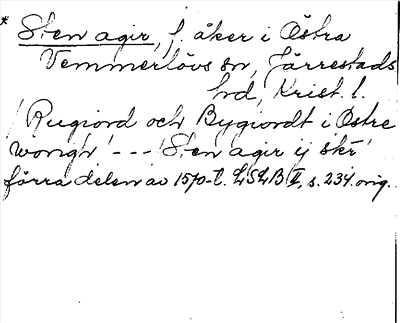 * Sten agir, f. åker i Östra
Vemmerlövs sn, Järrestads
hd, Krist. l.
'Rugiord och Bygiordt i Østre
wongh' --- 'Sten agir ij skr'
förra delen av 1570-t. LSLB II, s. 234 orig.